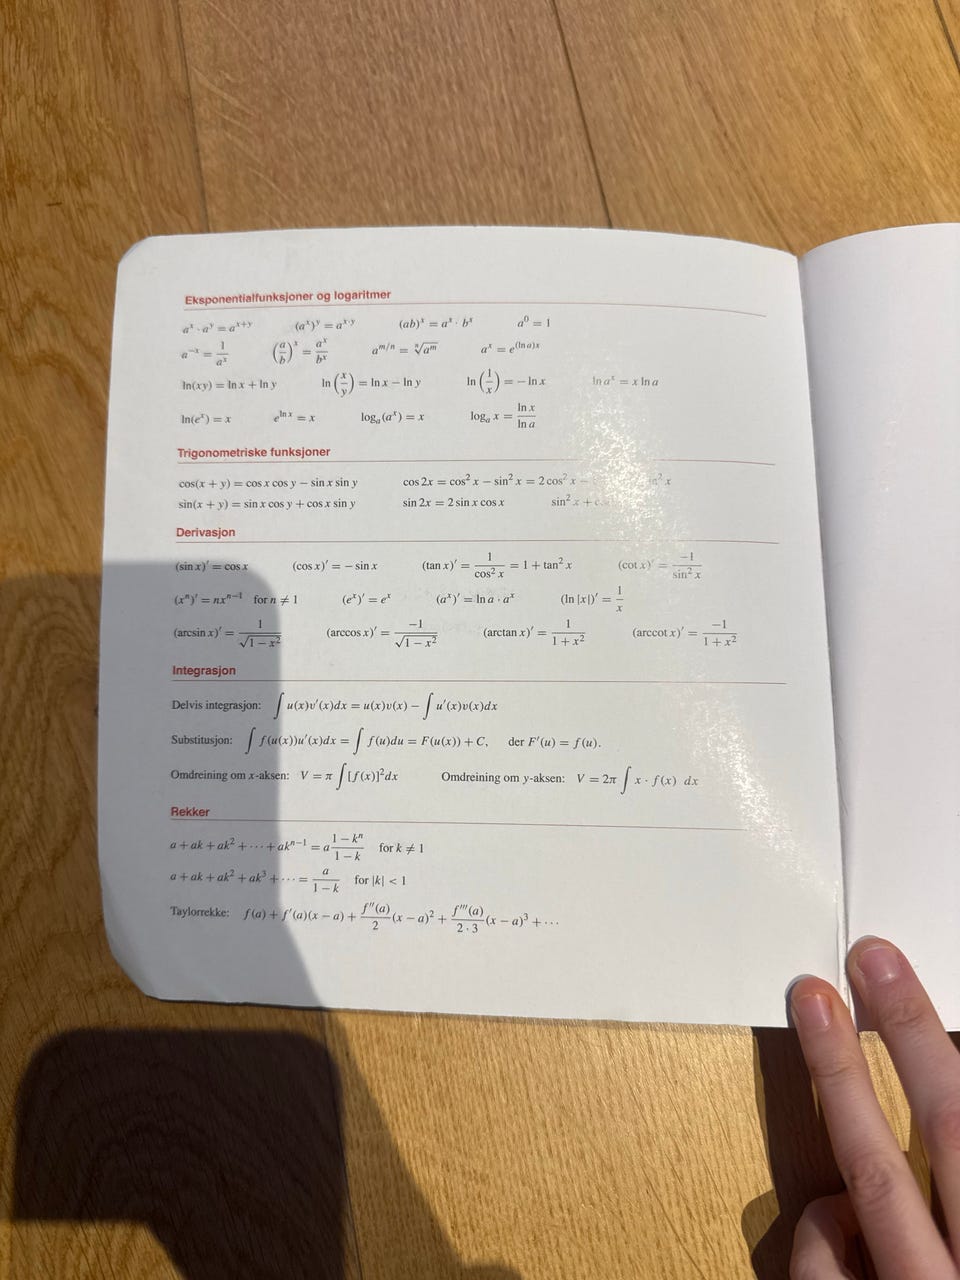 Eksponentialfunksjoner og logaritmer
a^x · a^y = a^{x+y}   (a^x)^y = a^{x·y}   (ab)^x = a^x · b^x   a^0 = 1
a^{−x} = 1/a^x   (a/b)^x = a^x/b^x   a^{m/n} = ⁿ√(a^m)   a^x = e^{(ln a)x}
ln(xy) = ln x + ln y   ln(x/y) = ln x − ln y   ln(1/x) = − ln x   ln a^x = x ln a
ln(e^x) = x   e^{ln x} = x   log_a(a^x) = x   log_a x = ln x/ln a
Trigonometriske funksjoner
cos(x + y) = cos x cos y − sin x sin y   cos 2x = cos² x − sin² x = 2 cos² x −
sin(x + y) = sin x cos y + cos x sin y   sin 2x = 2 sin x cos x   sin² x +
Derivasjon
(sin x)′ = cos x   (cos x)′ = − sin x   (tan x)′ = 1/cos² x = 1 + tan² x   (cot x)′ = −1/sin² x
(x^n)′ = nx^{n−1} for n ≠ 1   (e^x)′ = e^x   (a^x)′ = ln a · a^x   (ln |x|)′ = 1/x
(arcsin x)′ = 1/√(1 − x²)   (arccos x)′ = −1/√(1 − x²)   (arctan x)′ = 1/(1 + x²)   (arccot x)′ = −1/(1 + x²)
Integrasjon
Delvis integrasjon: ∫ u(x)v′(x)dx = u(x)v(x) − ∫ u′(x)v(x)dx
Substitusjon: ∫ f(u(x))u′(x)dx = ∫ f(u)du = F(u(x)) + C, der F′(u) = f(u).
Omdreining om x-aksen: V = π ∫ [f(x)]²dx   Omdreining om y-aksen: V = 2π ∫ x · f(x) dx
Rekker
a + ak + ak² + ··· + ak^{n−1} = a (1 − k^n)/(1 − k) for k ≠ 1
a + ak + ak² + ak³ + ··· = a/(1 − k) for |k| < 1
Taylorrekke: f(a) + f′(a)(x − a) + f″(a)/2 (x − a)² + f‴(a)/(2 · 3) (x − a)³ + ···